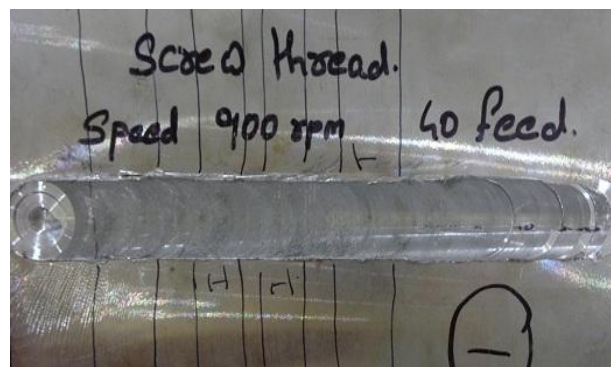 Screw thread.
Speed 900 rpm 40 feed.